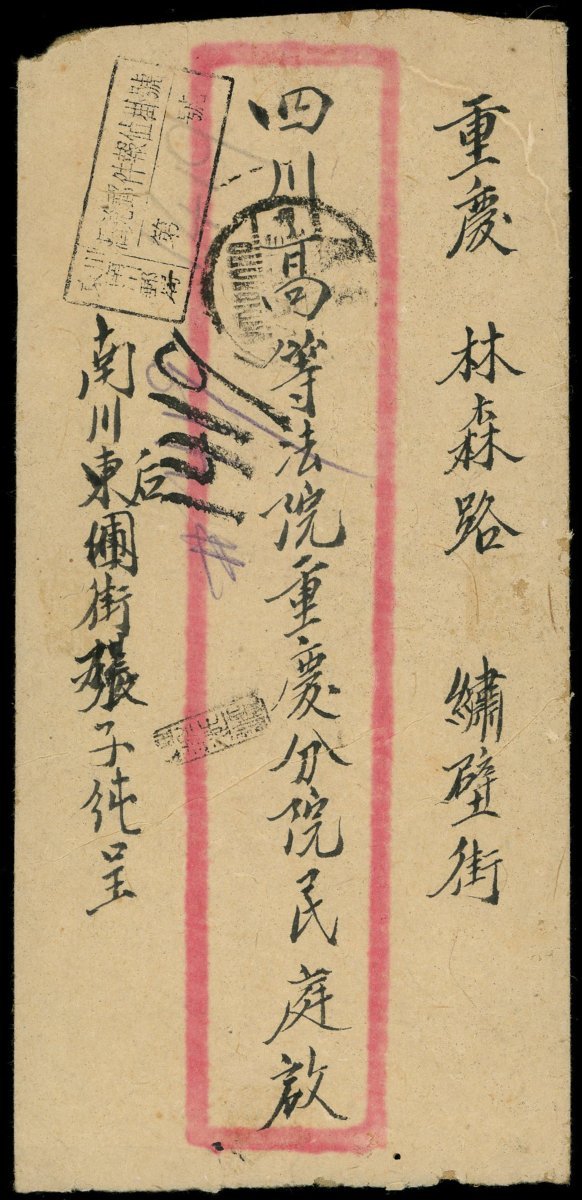 重慶 林森路 繡壁街
四川高等法院重慶分院民庭啟
南川東后街張子純呈
號
第